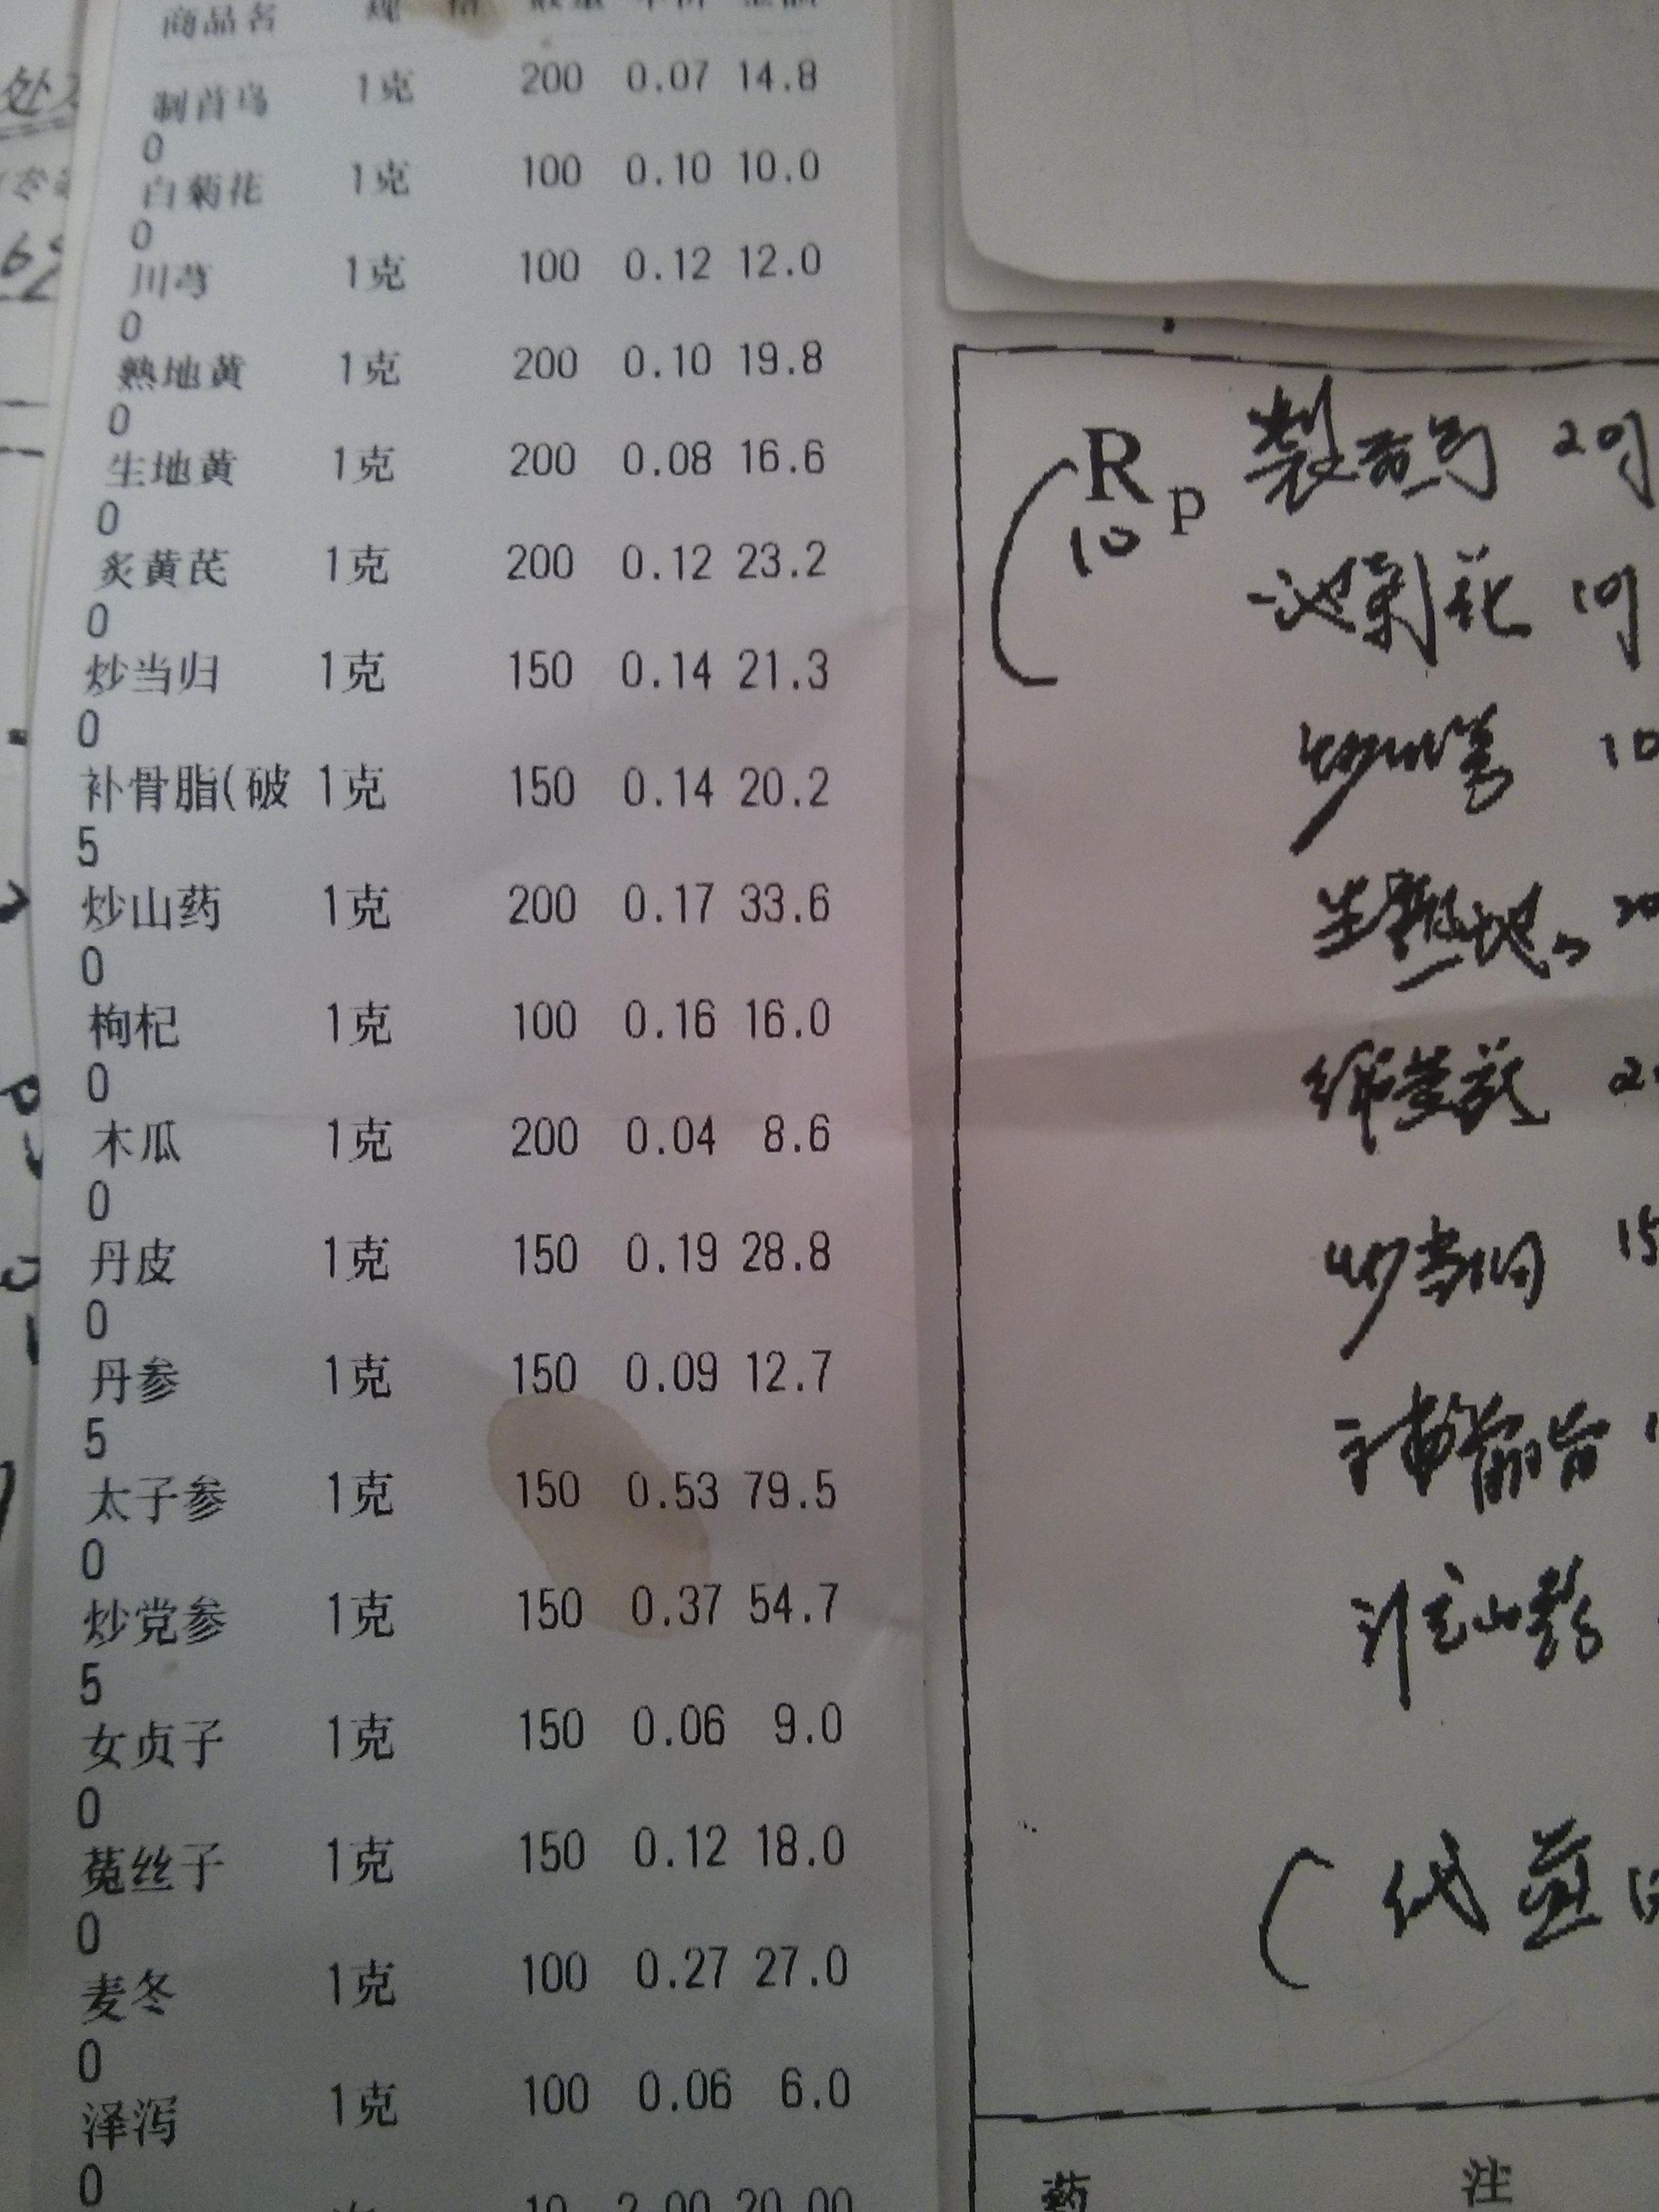 商品名 规 格 数量 单价 金额
制首乌 1克 200 0.07 14.8
0
白菊花 1克 100 0.10 10.0
0
川芎 1克 100 0.12 12.0
0
熟地黄 1克 200 0.10 19.8
0
生地黄 1克 200 0.08 16.6
0
炙黄芪 1克 200 0.12 23.2
0
炒当归 1克 150 0.14 21.3
0
补骨脂(破 1克 150 0.14 20.2
5
炒山药 1克 200 0.17 33.6
0
枸杞 1克 100 0.16 16.0
0
木瓜 1克 200 0.04 8.6
0
丹皮 1克 150 0.19 28.8
0
丹参 1克 150 0.09 12.7
5
太子参 1克 150 0.53 79.5
0
炒党参 1克 150 0.37 54.7
5
女贞子 1克 150 0.06 9.0
0
菟丝子 1克 150 0.12 18.0
0
麦冬 1克 100 0.27 27.0
0
泽泻 1克 100 0.06 6.0
0
10 2.00 20.00
Rp 製首乌
10
菊花
炒川芎 10
生熟地
炒当归 15
补骨脂
淮山药
代煎
药 注